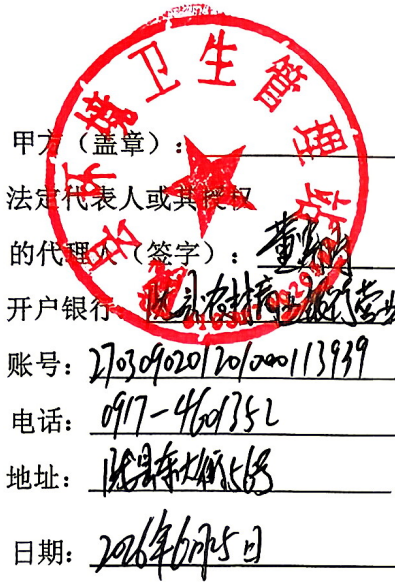 县环境卫生管理站
甲方（盖章）：
法定代表人或其授权
的代理人（签字）：董
开户银行：农村商业银行营业
账号：2703090201201000113939
电话：0917-4601352
地址：陇县东大街56号
日期：2026年6月25日